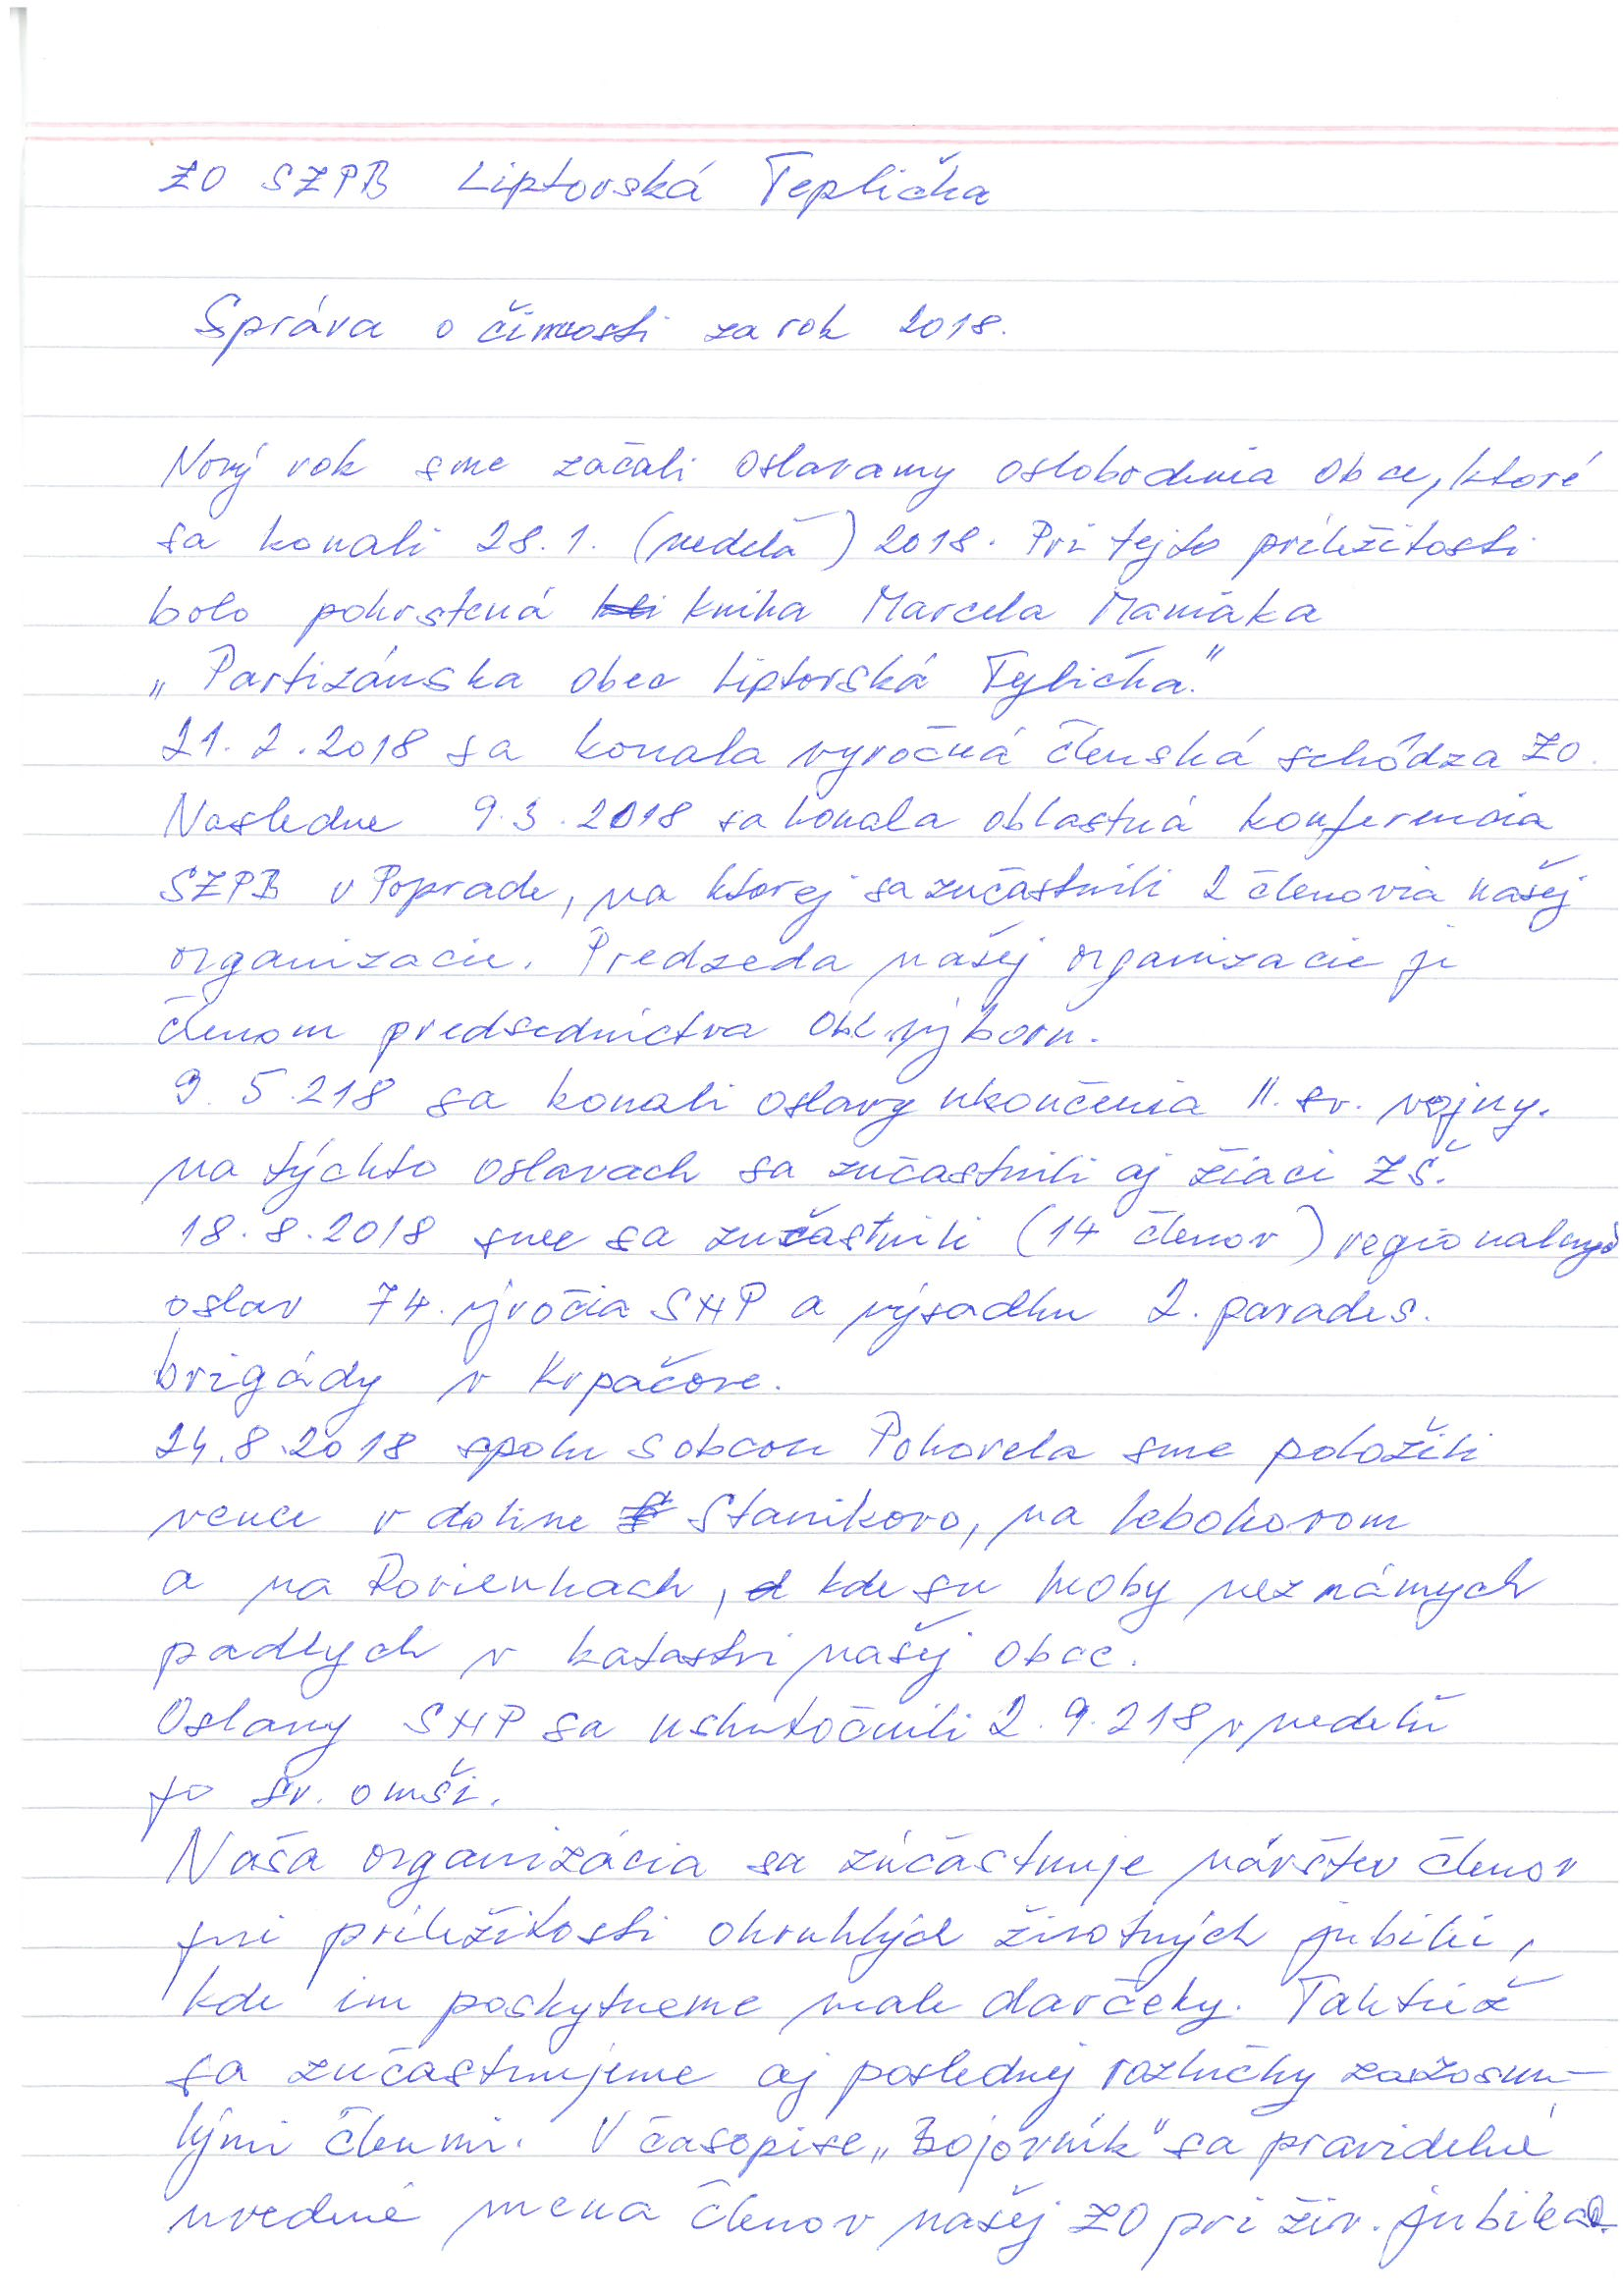 ZO SZPB Liptovská Teplička
Správa o činnosti za rok 2018.
Nový rok sme začali oslavamy oslobodenia obce, ktoré
sa konali 28.1. (nedeľa) 2018. Pri tejto príležitosti
bolo pokrstená kniha Marcela Maniaka
„Partizánska obec Liptovská Teplička."
21.2.2018 sa konala vyročná členská schôdza ZO.
Nasledne 9.3.2018 sa konala oblastná konferencia
SZPB v Poprade, na ktorej sa zučastnili 2 členovia našej
organizacie. Predzeda našej organizacie je
členom predsednictva obl. výboru.
9.5.218 sa konali oslavy ukončenia II. sv. vojny.
na týchto oslavach sa zučastnili aj žiaci ZŠ.
18.8.2018 sme sa zučastnili (14 členov) regionalnych
oslav 74. výročia SNP a výsadku 2. parades.
brigády v Krpačove.
24.8.2018 spolu s obcou Pohorela sme položili
vence v doline Stanikovo, na
a na Rovienkach, kde su hroby neznámych
padlych v katastri našej obce.
Oslavy SNP sa uskutočnili 2.9.218 v nedeľu
po sv. omši.
Naša organizácia sa zúčastnuje návštev členov
pri príležitosti okruhlých životných jubilií,
kde im poskytneme male darčeky. Taktiež
sa zučastnujeme aj poslednej rozlučky zo zosnu-
lými členmi. V časopise „Bojovník" sa pravidelne
uvedené mena členov našej ZO pri živ.